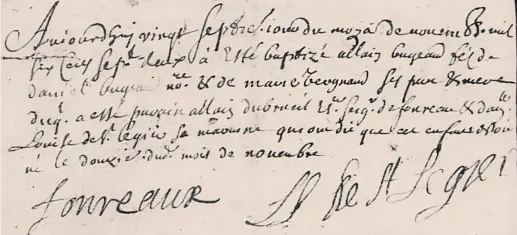 Aujourdhuy vingt septies. jour du moys de novemb. mil
six cens sept. deux à Esté baptizé allain bugeaud filz de
daniel bugeaud no.re & de marie bergnaud ses pere & mere
a esté parain allain dubreuil seig.r de fonreau & dam.lle
Louise de St legier sa maraine qui ont dit que cet enfant
né le douzie. dud. mois de novembre
fonreaux L de St Legier